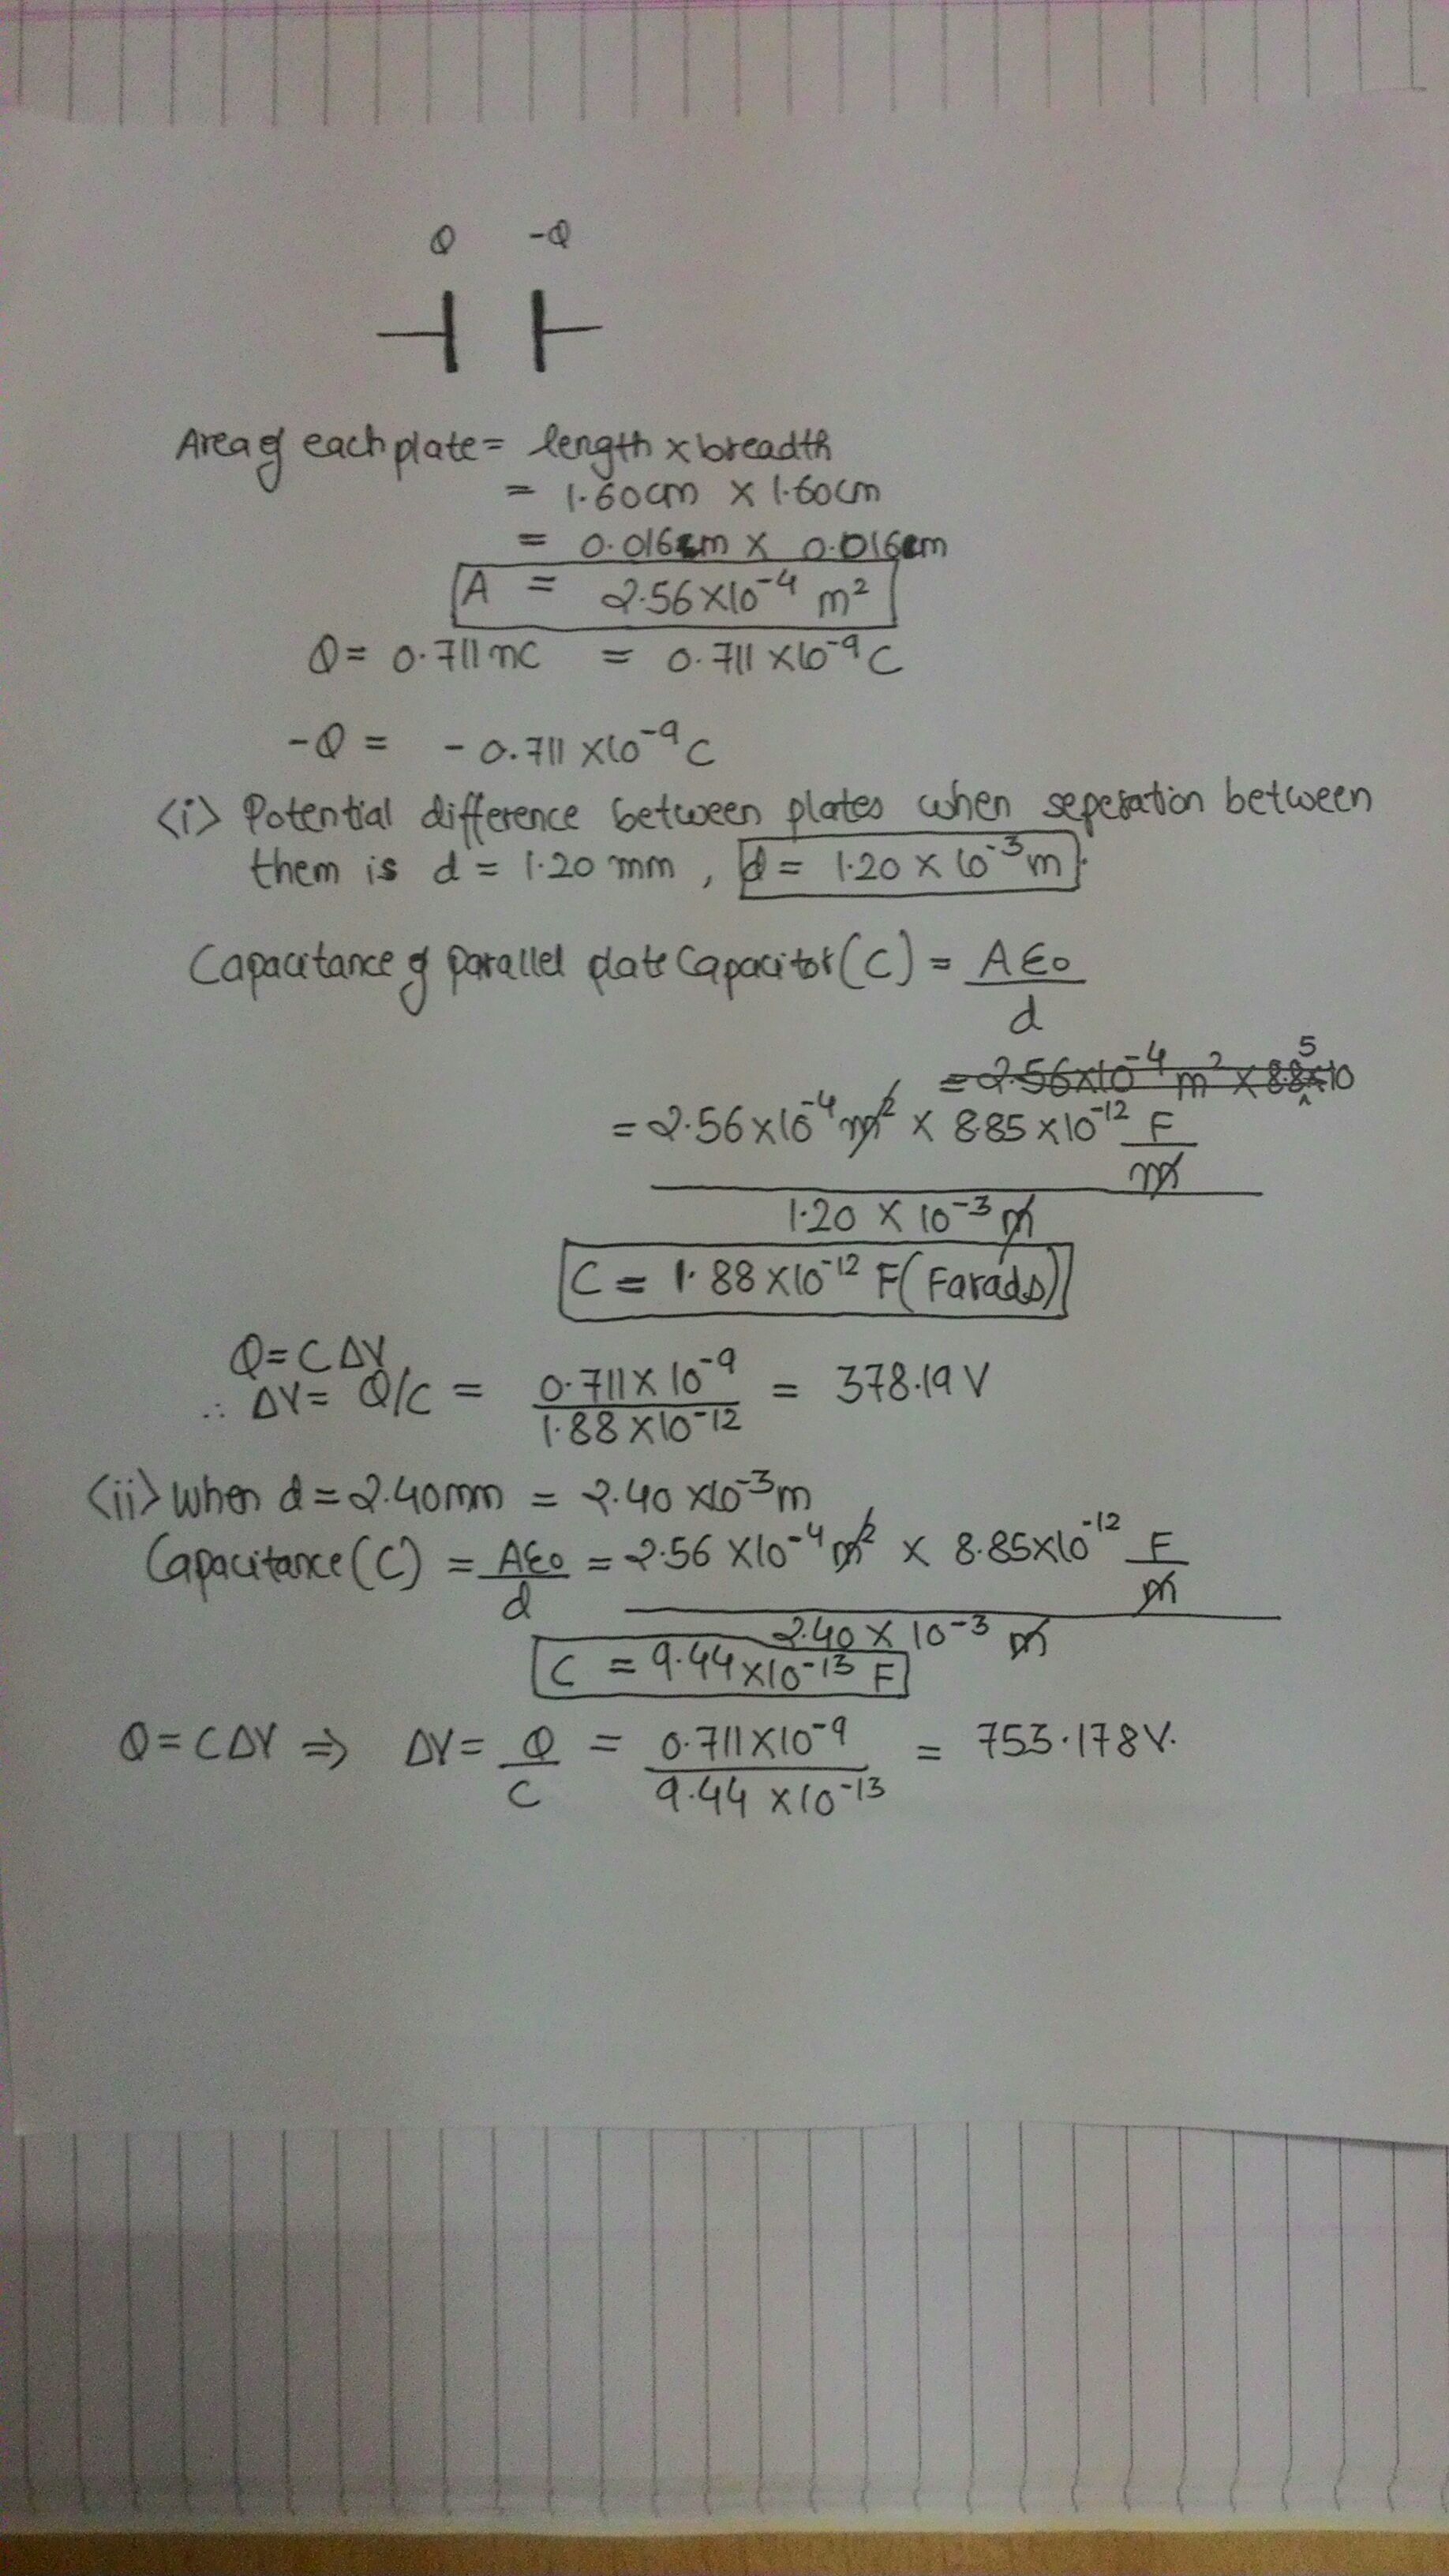 Q -Q
Area of each plate = length × breadth
= 1.60cm × 1.60cm
= 0.016m × 0.016m
A = 2.56×10⁻⁴ m²
Q = 0.711nC = 0.711×10⁻⁹C
-Q = -0.711×10⁻⁹C
<i> Potential difference between plates when seperation between
them is d = 1.20 mm, d = 1.20 × 10⁻³m.
Capacitance of parallel plate Capacitor (C) = Aϵ₀
d
= 2.56×10⁻⁴ m² × 8.85×10
= 2.56×10⁻⁴m² × 8.85×10⁻¹² F
m
1.20 × 10⁻³ m
C = 1.88×10⁻¹² F (Farads)
Q = CΔV
∴ ΔV = Q/C = 0.711×10⁻⁹ = 378.19 V
1.88×10⁻¹²
<ii> when d = 2.40mm = 2.40×10⁻³m
Capacitance (C) = Aϵ₀ = 2.56×10⁻⁴m² × 8.85×10⁻¹² F
d m
2.40 × 10⁻³ m
C = 9.44×10⁻¹³ F
Q = CΔV ⇒ ΔV = Q = 0.711×10⁻⁹ = 753.178V.
C 9.44×10⁻¹³